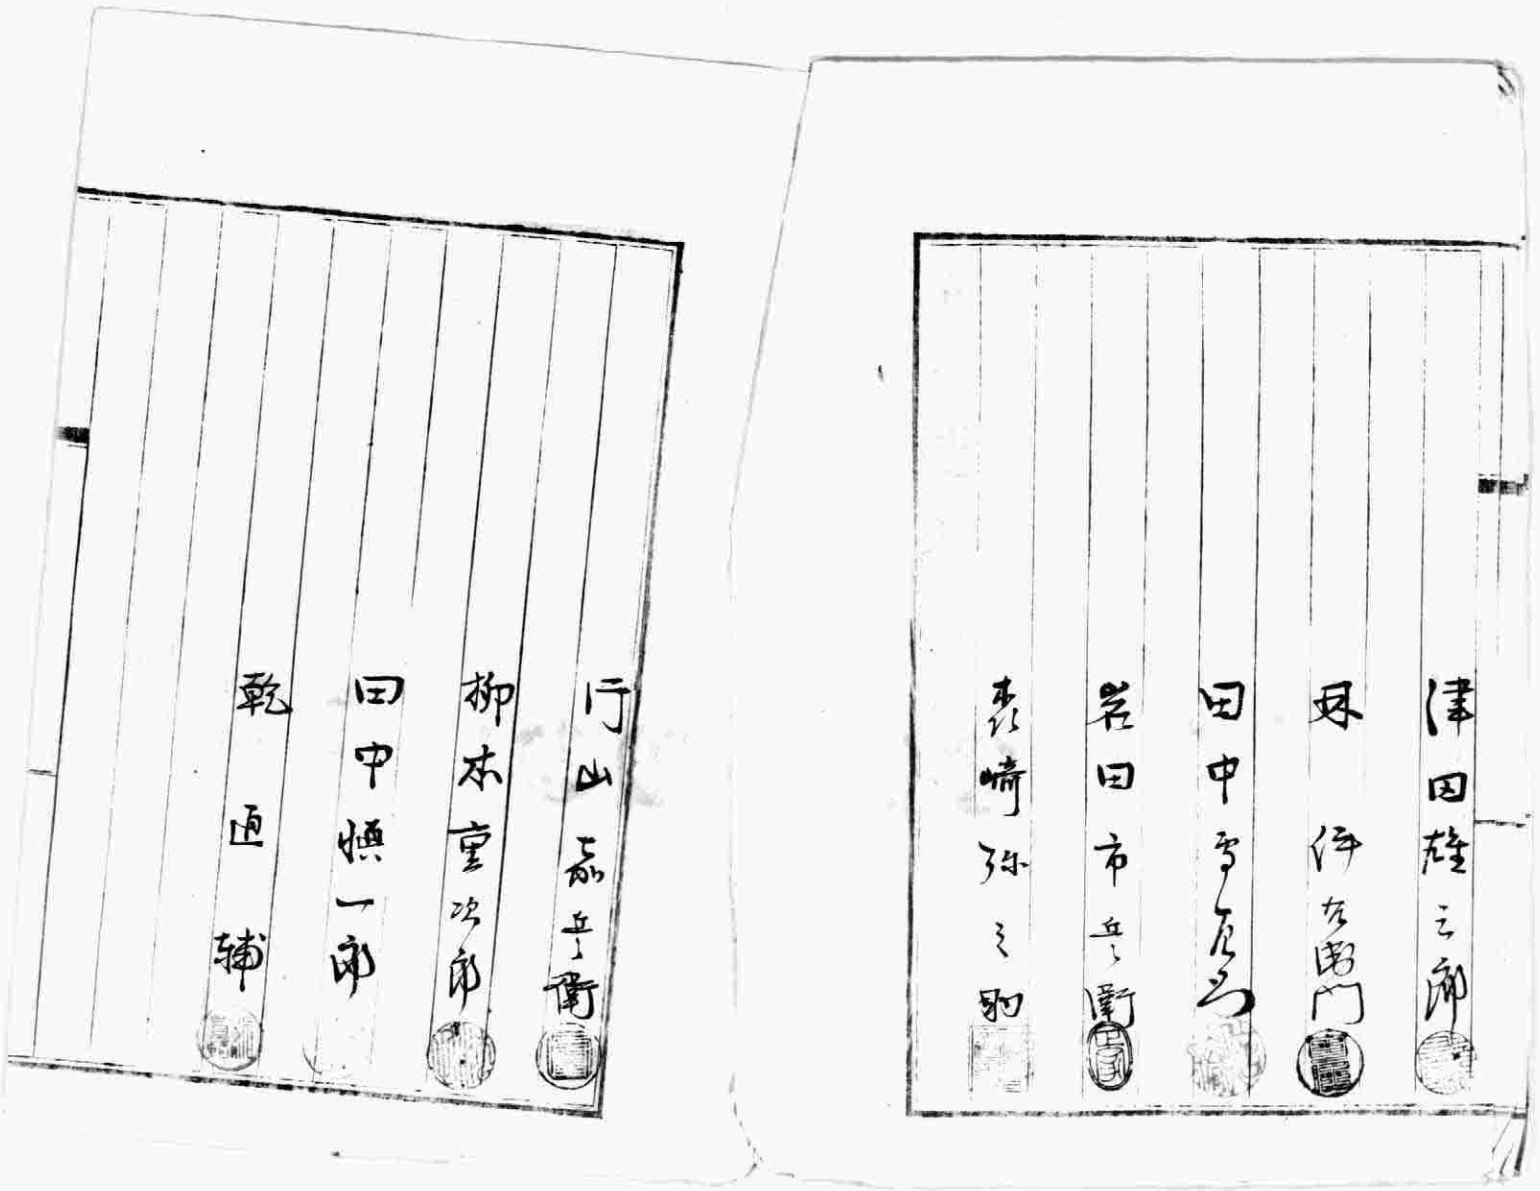 津田雄三郎
林 伊左衛門
田中雪右衛門
岩田市兵衛
森崎弥之助
片山嘉兵衛
柳本重次郎
田中慎一郎
乾 通輔